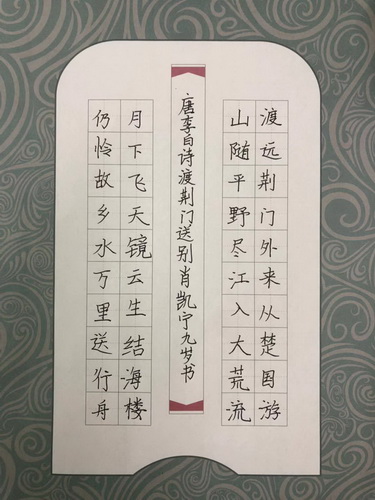 渡远荆门外来从楚国游
山随平野尽江入大荒流
唐李白诗渡荆门送别肖凯宁九岁书
月下飞天镜云生结海楼
仍怜故乡水万里送行舟